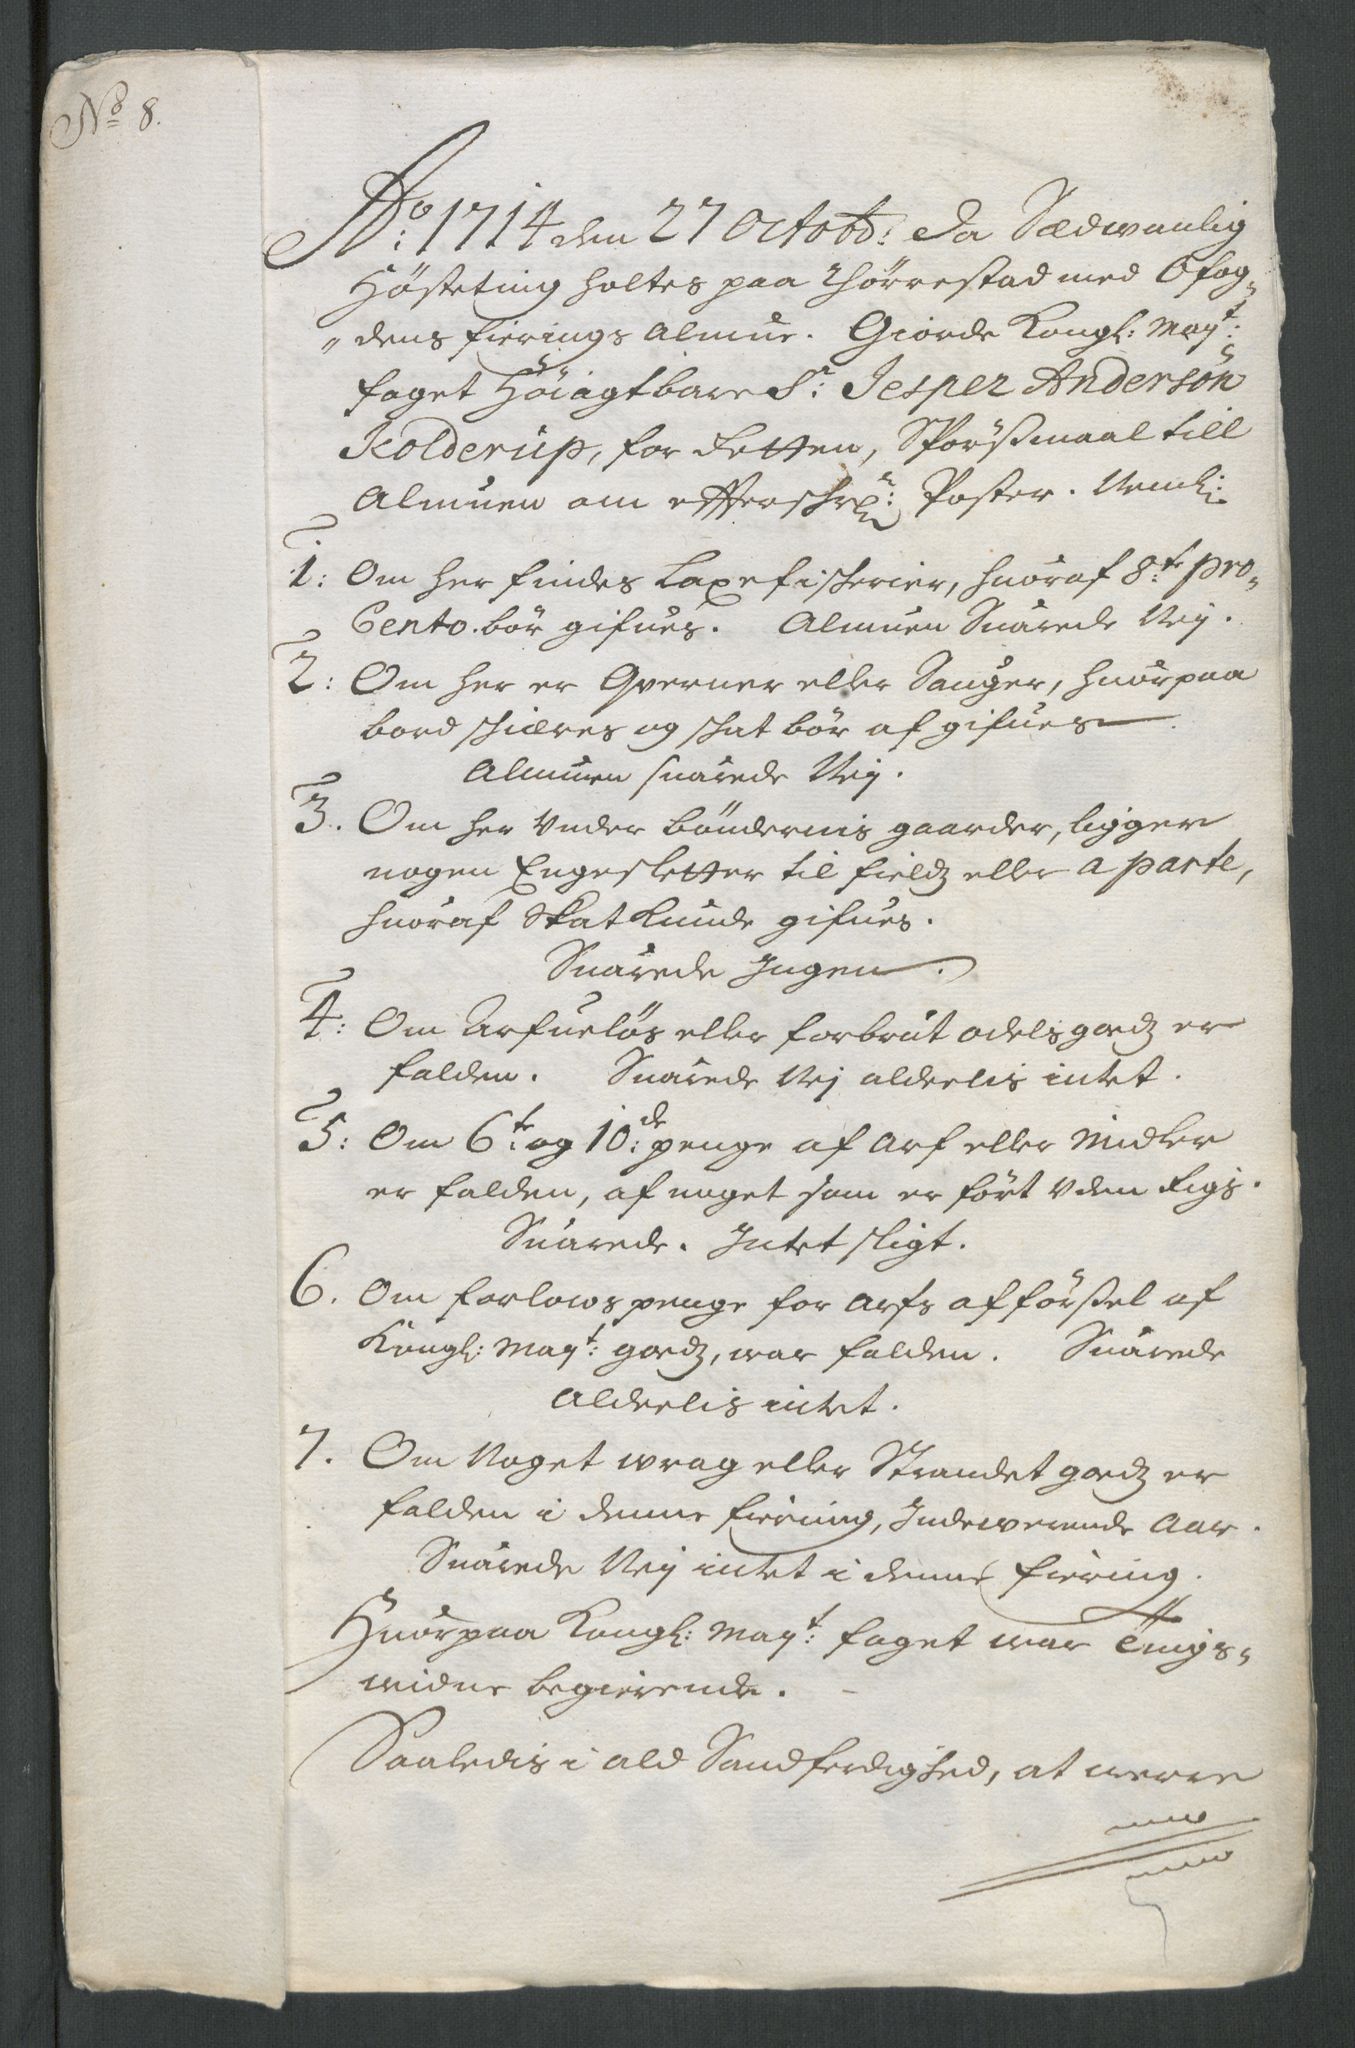 No 8.
Ao: 1714 den 27 Octobr: Da Sædwanlig
Hösteting holtes paa Thörrestad med Ofog-
„dens fierings Almue. Giorde Kongl: Mayt:
foget Höiagtbare Sr: Jesper Andersön
Kolderup, for Retten, Spörßmaal till
Almuen om effterschrne: Poster. Neml:
1: Om her findes Laxefischerier, huoraf 8:te pro-
Cento bör gifues. Almuen Suarede Nej.
2: Om her er Qverner eller Sauger, huorpaa
bord schiæres og schat bör af gifues
Almuen suarede Nej.
3. Om her Under böndernis gaarder, ligger
nogen Engesletter til fieldz eller a parte,
huoraf Skat kunde gifues.
Suarede Ingen.
4: Om Arfuelös eller forbrut odelsgodz er
falden. Suarede Nej aldeelis intet.
5: Om 6:te og 10:de penge af Arf eller Midler
er falden, af noget som er fört Uden Rigs.
Suarede. Intet sligt.
6. Om forlowspenge for Arfs afförßel af
Kongl: Mayt: godz, war falden. Suarede
Aldeelis intet.
7. Om Noget wrag eller Strandet godz er
falden i denne fiering, Indewerende Aar.
Suarede Nej intet i denne fiering.
Huorpaa Kongl: Mayt: foget war Tings-
widne begierende.
Saaledis i ald Sandferdighed, at were